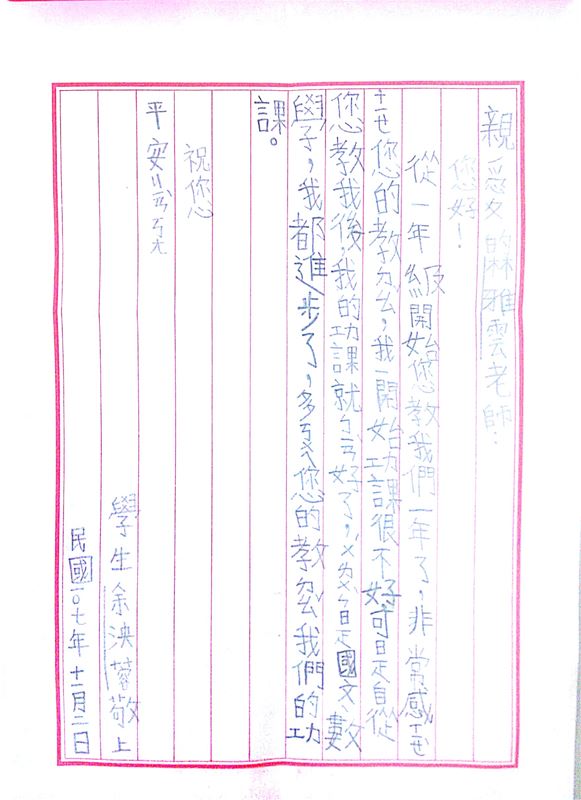 親愛的林雅雲老師：
您好！
從一年級開始您教我們一年了，非常感
您的教ㄉㄠ，我一開始功課很不好可是自從
您教我後，我的功課就ㄅㄧㄢ好了，ㄨㄌㄨㄣ是國文、數
學，我都進步了，多ㄎㄨㄟ您的教ㄉㄠ我們的功
課。
祝您
平安ㄐㄧㄢㄎㄤ
學生余泱蓉敬上
民國一0七年十一月二日